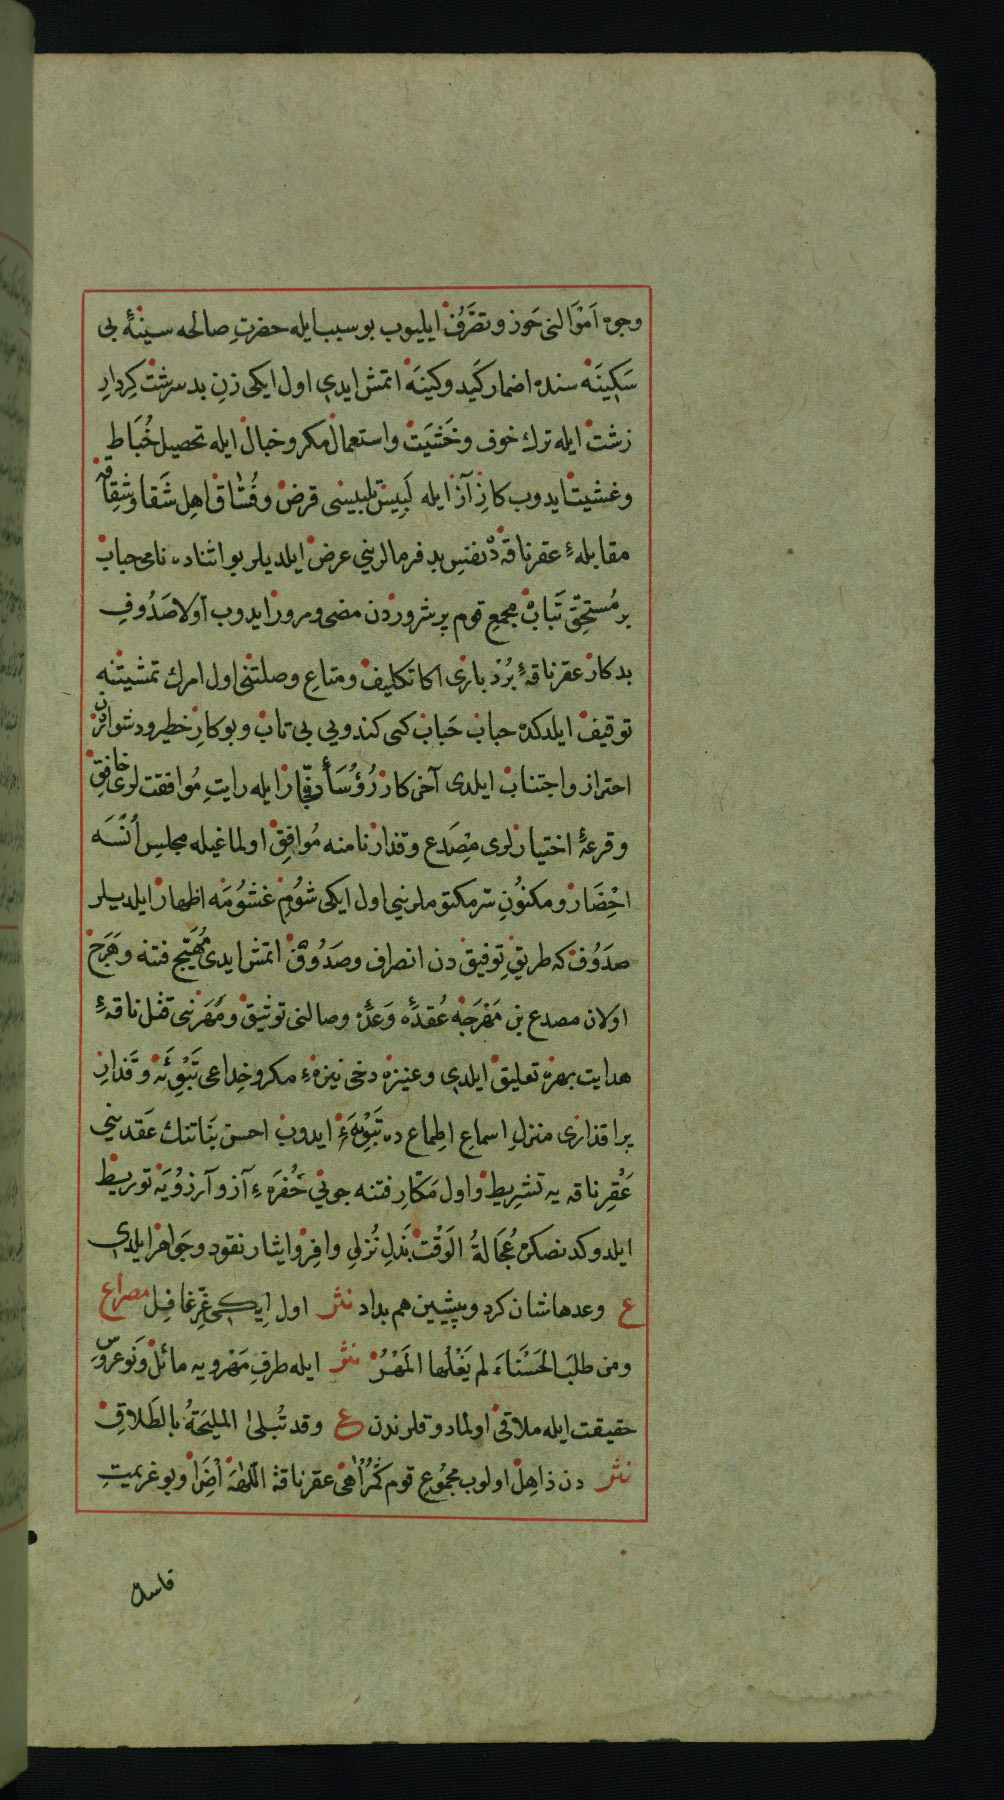 وجوه اَمْوَالنی حَوز و تصَّرُف ایلیوب بو سبب ایله حضرتِ صالحه سینهٔ بی
سَکِینَه سنده اضمار کَید و کینَه اتمش ایدی اول ایکی زنِ بد سرشت کِردارِ
زشت ایله ترك خوف و خَشیَت و استعمال مکر و خیال ایله تحصیل خُبَاطِ
و غشیت ایدوب کازِ آز ایله لَبِیسَ تلبیسی قرض و فُسَّاق اهلِ شَقا و شِقاقه
مقابلهٔ عقر ناقه دْ نفسِ بد فرمالرینی عرض ایلدیلر بو اثناده نامی حباب
بر مُستحِقّ تَبابْ مجمع قوم پر شروردن مضی و مرور ایدوب اولا صَدُوفِ
بدکار عقر ناقهٔ بُرْد باری اکا تکلیف و متاعِ وصلتنی اول امرك تمشیتنه
توقیف ایلدکده حباب حَباب کبی کندویی بی تاب و بو کارِ خطیر و دشواردن
احتراز و اجتناب ایلدی آخر کار رُؤسَأ فجّار ایله رایتِ مُوافقت لری خافق
و قرعهٔ اختیار لری مِصَدع و قذار نامنه مُوافِق اولماغیله مجلسِ اُنْسَه
احِْضَار و مکنُونِ سّر مکتوملرینی اول ایکی شُومِ غشُومَه اظهار ایلدیلر
صدَوُف که طریقِ توفیق دن انصراف و صَدُوُق اتمش ایدی مُهَیّج فتنه و هَرَج
اولان مصدع بن مَهْرَجَه عُقدهٔ وَعدُه وصالنی توثیق و مَهَرنی قتل ناقهٔ
هدایت بهره تعلیق ایلدی و عنیزه دخی نیزهٔ مکر و خِداعی تَبْوِئَه و قَذارِ
پر اقذاری منزلِ اسماعِ اطماع ده تَبْوِیهَء ایدوب احسن بَناتنك عَقدینی
عَقْرِ ناقه یه تشرِیط و اول مَکّارِ فتنه جویی حُفرَهٔ آز و آرزُویَه توریط
ایلدوکد نصکره عُجَالةُ الوَقْت بَذلِ نُزلِ وافِر و ایثار نقود و جَواهر ایلدی
ع وعدها شان کرد و پیشین هم بداد نثر اول ایکی غِّرِ غافِل مصراع
ومن طلَبَ الحَسْنَاءَ لم یَغْلُها المَهْرُ نثر ایله طرفِ مَهْرویه مائل و نَو عروُسِ
حقیقت ایله ملاقی اولمادوقلرندن ع وقد تُبلیٰ الملیحَةُ بالطَلاقِ
نثر دن ذاهِل اولوب مجمُوعِ قوم کُمْرُاهی عقر ناقة اللّٰهَه اَضِرا و بو عزیمتِ